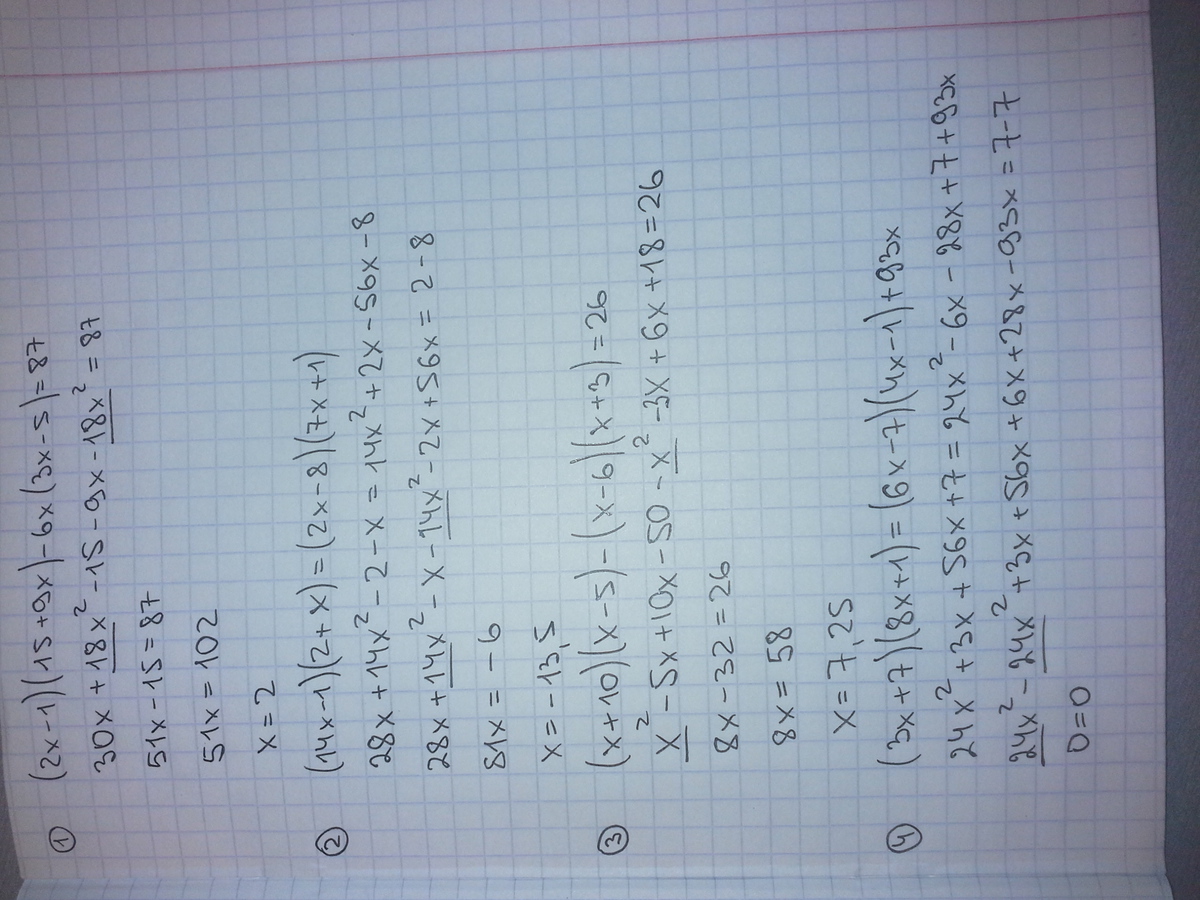 ① (2x-1)(15+9x)-6x(3x-5)=87
30x+18x²-15-9x-18x²=87
51x-15=87
51x=102
x=2
② (14x-1)(2+x)=(2x-8)(7x+1)
28x+14x²-2-x=14x²+2x-56x-8
28x+14x²-x-14x²-2x+56x=2-8
81x=-6
x=-13,5
③ (x+10)(x-5)-(x-6)(x+3)=26
x²-5x+10x-50-x²-3x+6x+18=26
8x-32=26
8x=58
x=7,25
④ (3x+7)(8x+1)=(6x-7)(4x-1)+93x
24x²+3x+56x+7=24x²-6x-28x+7+93x
24x²-24x²+3x+56x+6x+28x-93x=7-7
0=0